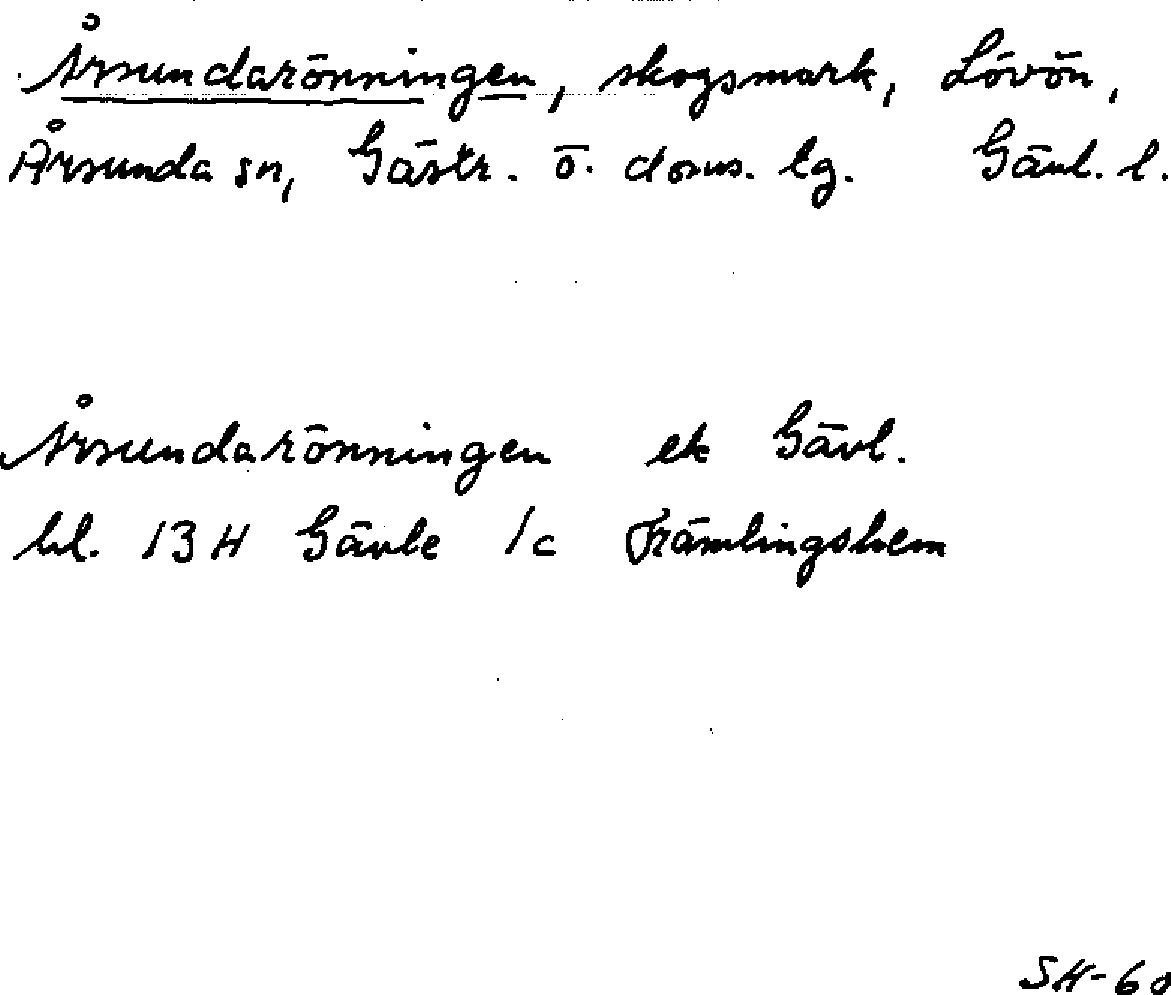 Årsundarönningen, skogsmark, Lövön,
Årsunda sn, Gästr. ö. doms. lg. Gävl. l.
Årsundarönningen ek Gävl.
bl. 13 H Gävle 1c Främlingshem
SH-60